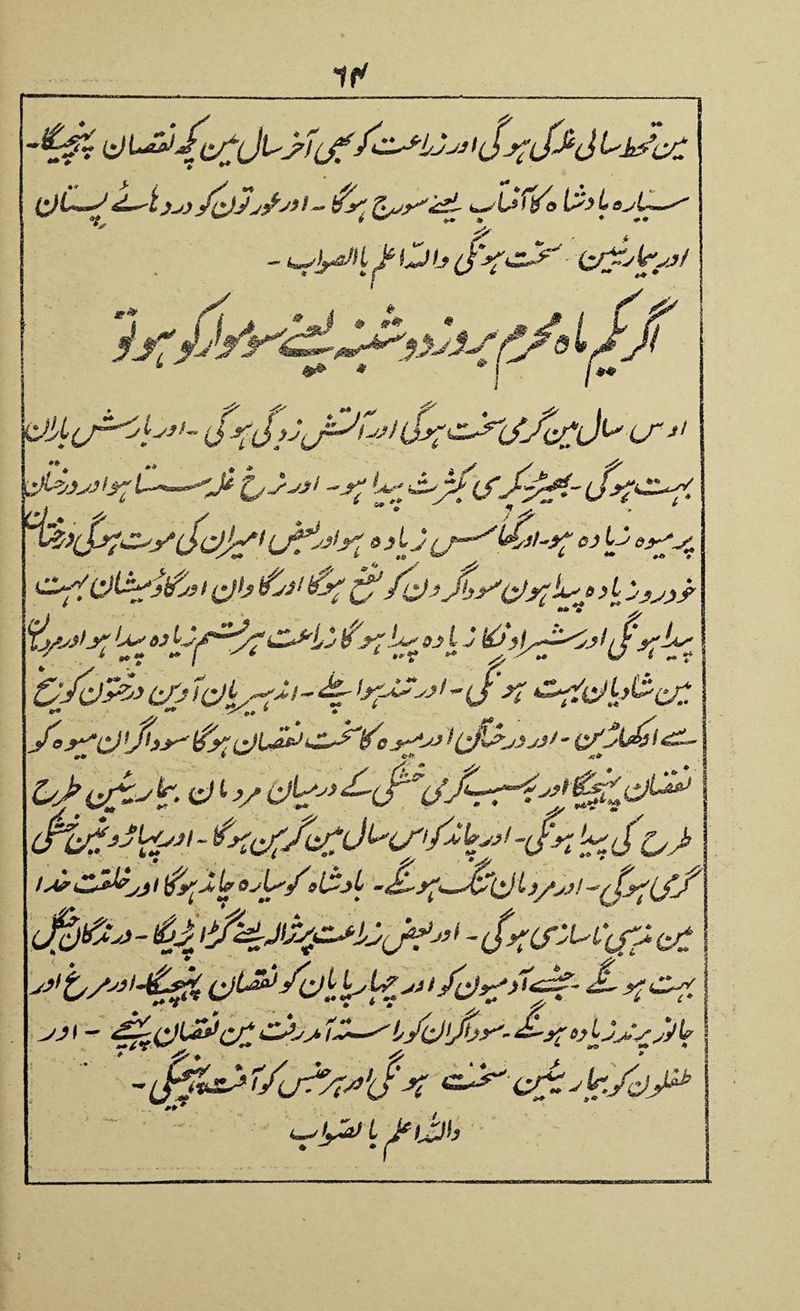 ۶۴
مین قحط سالی غلہ کی ہوگی اور زراعت کو بھی آخر سال مین کچھ نقصان پہنچیگا۔
ستارہ بادشاہ کا آفتاب یعنے سورج ہوگا۔ اور عورتون کو درد پستان
اور بیماریئین سخت ہونگی واللہ اعلم باالصواب۔
اگر یکم ماہ محرم بروز دوشنبہ یعنے سوموار کو ہو تو
اوس سال مین گرمی سخت ہوگی اور آتش زدگی ہوگی۔ اور بارش باران
بہت ہوگی۔ بھیڑ بکری کثرت پیدا ہو۔ اور نرخ غلہ سستا ہو اور درختان
پر میوہ زیادہ ہو۔ اور گھاس زیادہ ہو اور بعض امیرون کی موت ہوگی درختان
خودرو زیادہ پیدا ہون سوداگرون کو نفع ہوگا اور گاوان اور گاؤمیشان بہت
پیدا ہونگی اور شیر اونکا زیادہ پیدا ہوگا زراعت ہر قسم زیادہ پیدا ہو اور
مین شادیان بہت ہونگی۔ اور تند ہوا چلے۔ آندھیان آوین درختون کو بیخ
سے اوکھاڑین۔ اور درختان اور میوہ کا سخت نقصان ہوگا سوداگران میوہ کو
نقصان پہنچیگا اور بسبب گرمی خشکی کے درمیان مردمان بیماریئین طرح
طرح کی پیدا ہونگی۔ اور چاند کو اس سال مین گرہن ہوگا۔ اور پہاڑونمین خشکی
گرمی ہوگی۔ اور مردمان تنگ ہونگے۔ بادشاہ کو ستارہ چاند ہوگا اور خلقت خدا
مین بڑی ناسازی ہوگی۔ اور بعض زراعت پر ژالہ یعنے گڑا پڑیگا۔
بہت ہونگے۔ جس سے آدمیون کو اور چارپایان کو نقصان پہنچیگا۔ اور مرغ اور
جانور پرند زیادہ ہونگے۔ سوداگران کو راستہ آمد و رفت مین نقصان پہنچے۔ اور
طفلون کو بیماریئین سخت ہونگی اور ہر جنس کو آفت پہنچیگی۔
واللہ اعلم باالصواب